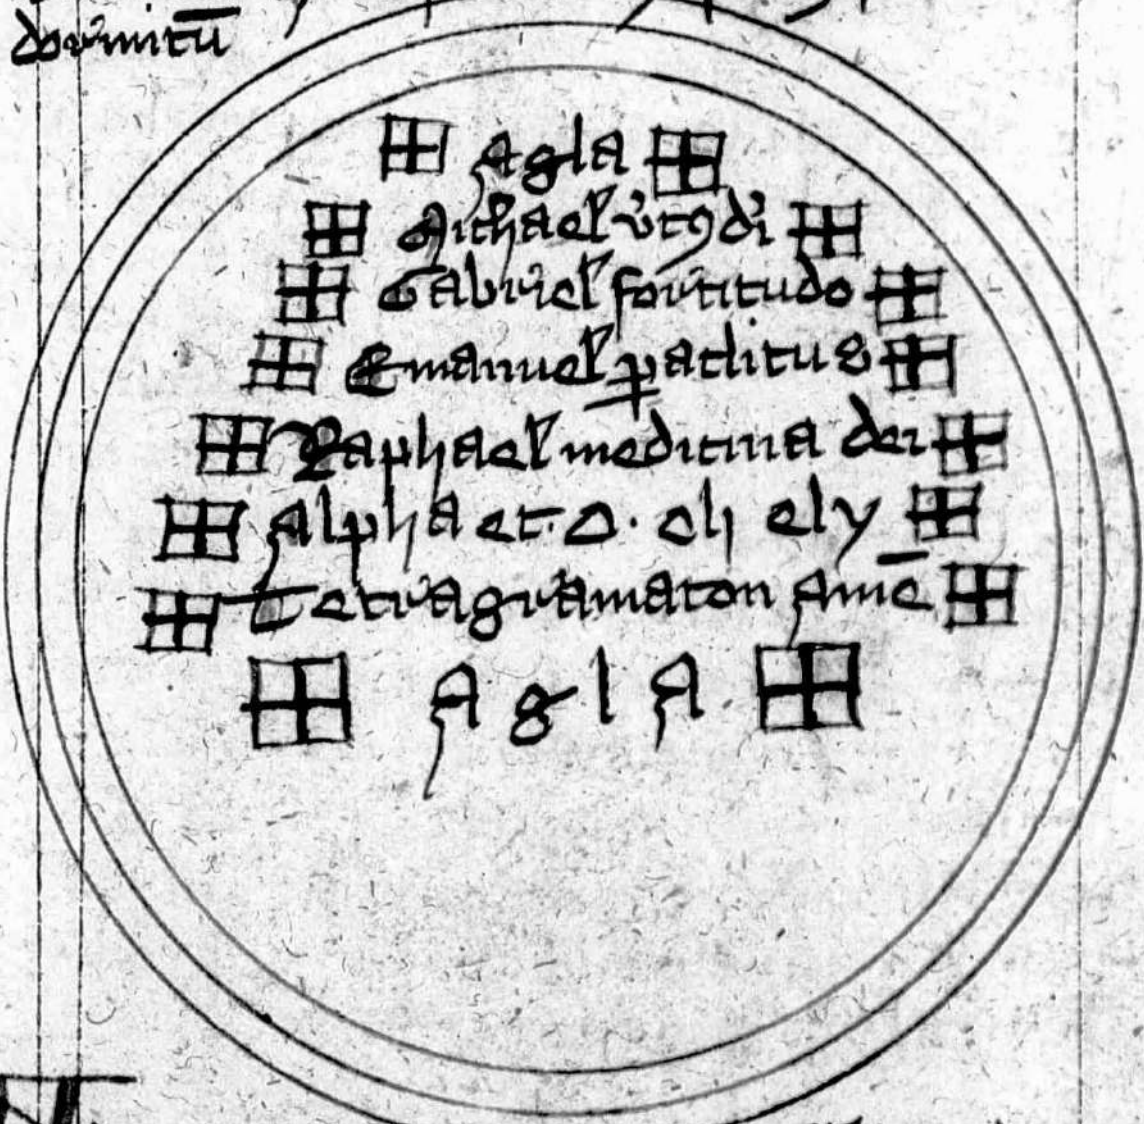 dormitū
Agla
Michael v̓tꝯ di
Gabriel fortitudo
Emanuel ꝑaclitus
Raphael medicina dei
Alpha et · O · eli ely
Tetragramaton amē
A g l A